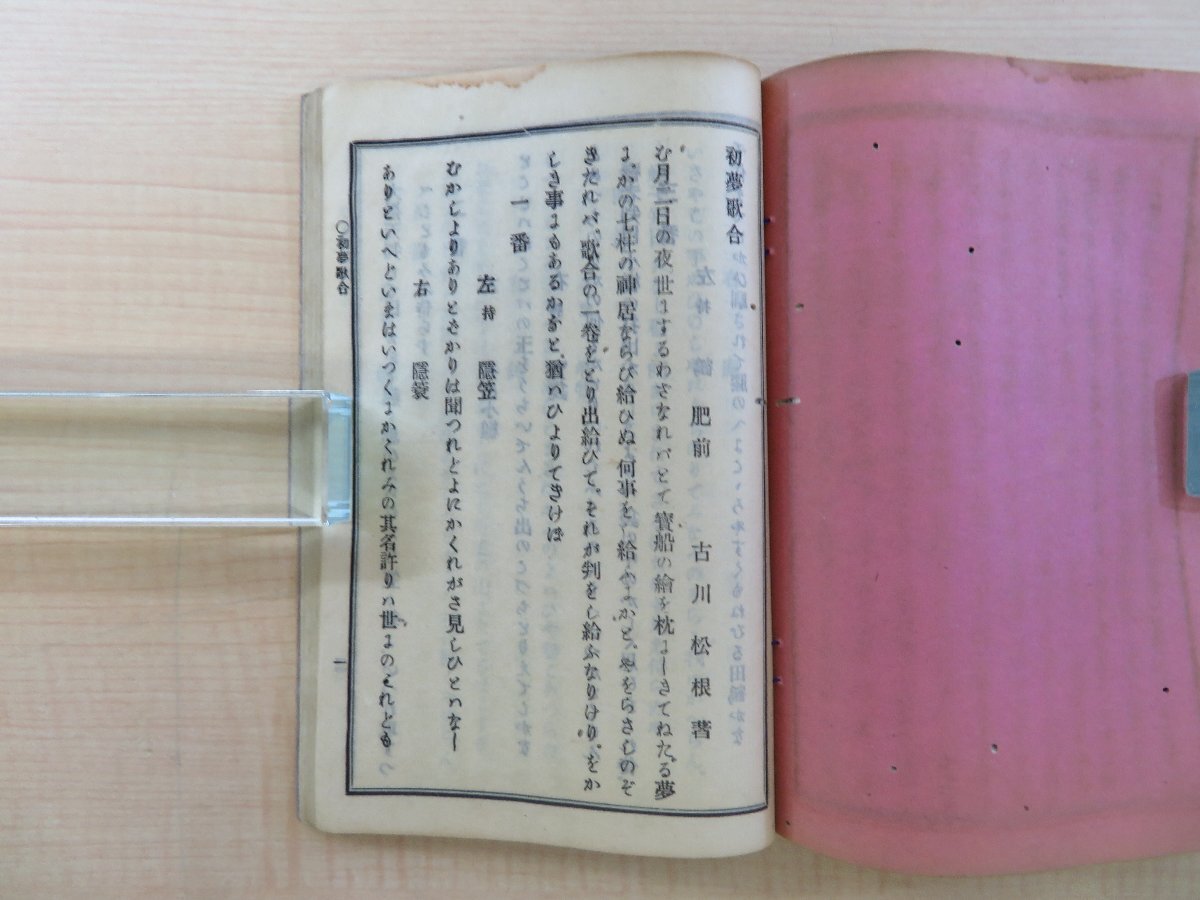 初夢歌合
肥前 古川松根著
む月二日の夜世にするわざなれバとて寳船の繪を枕にしきてねたる夢
に、かの七柱の神居ならび給ひぬ何事を給ふにかと、やをらさしのぞ
きたれバ、歌合の一卷をとり出給ひて、それが判をし給ふなりけり、をか
しき事にもあるかなと、猶ハひよりてきけば
一番
左 持 隱笠
むかしよりありとさかりは聞つれとよにかくれがさ見しひとハなし
右 隱蓑
ありといへどいまはいつくにかくれみの其名許りハ世にのこれとも
〇初夢歌合
一